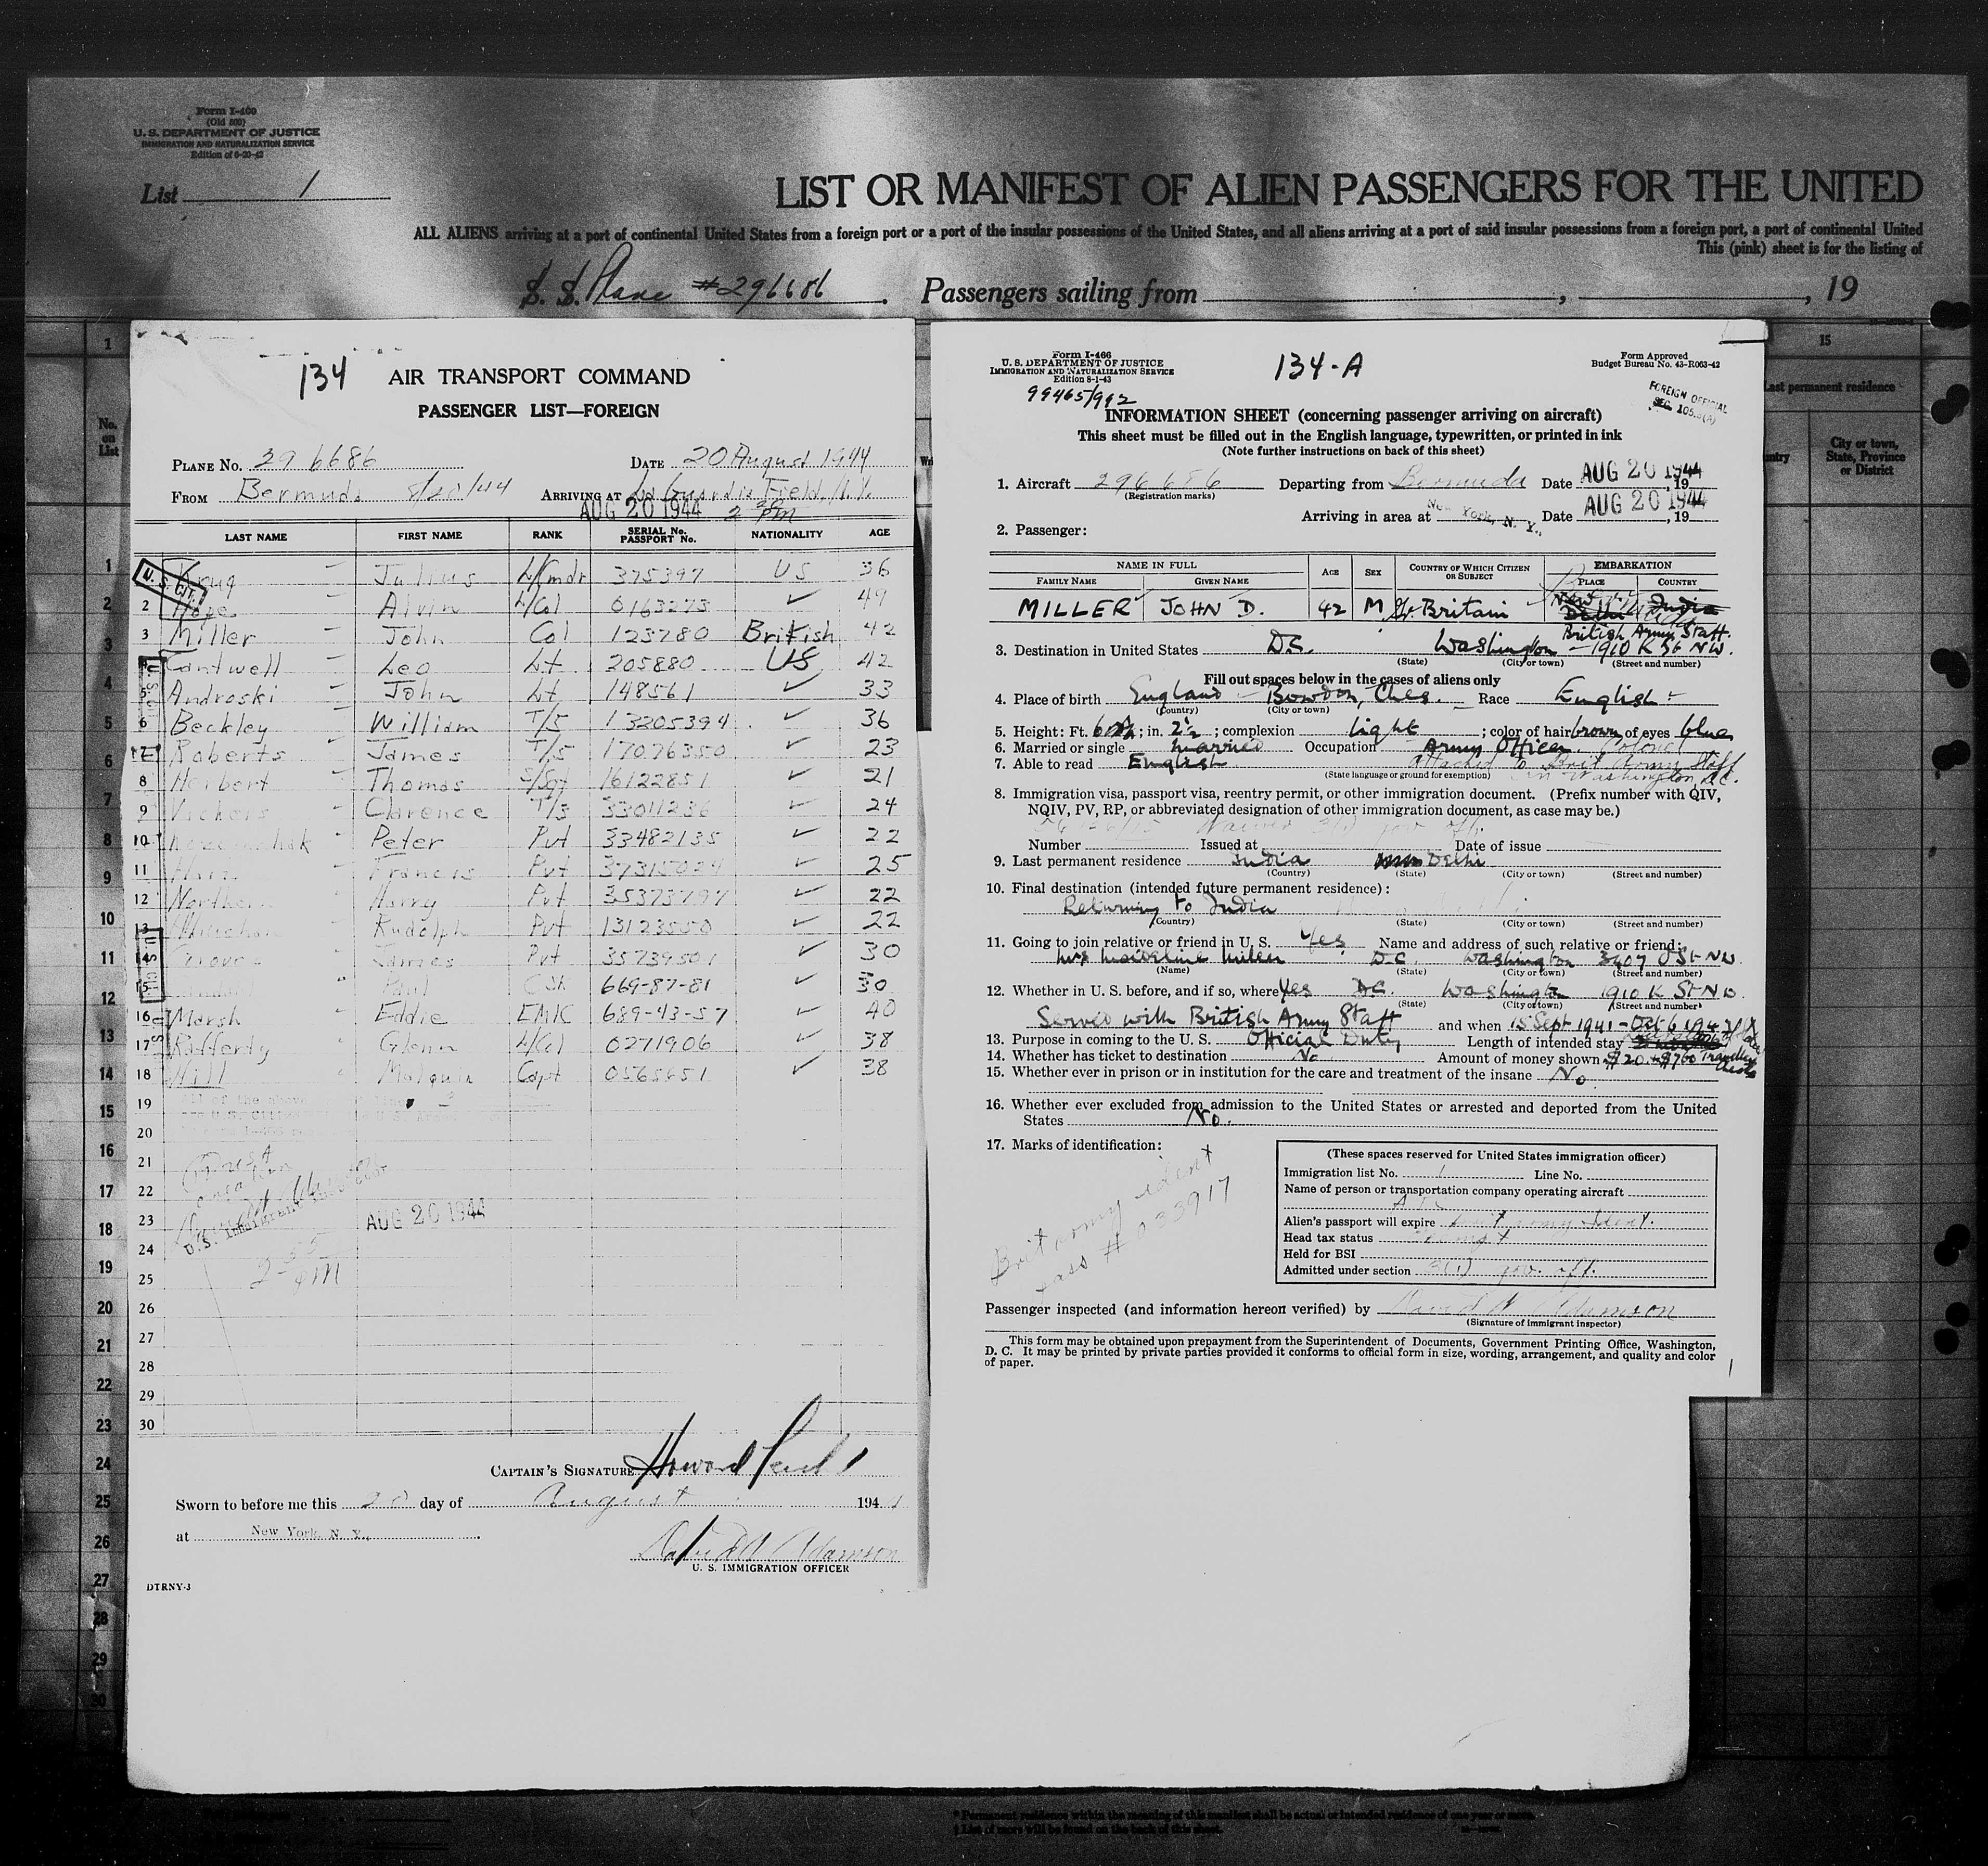 Form I-400
(Old 500)
U. S. DEPARTMENT OF JUSTICE
IMMIGRATION AND NATURALIZATION SERVICE
Edition of 6-20-42
List 1
LIST OR MANIFEST OF ALIEN PASSENGERS FOR THE UNITED
ALL ALIENS arriving at a port of continental United States from a foreign port or a port of the insular possessions of the United States, and all aliens arriving at a port of said insular possessions from a foreign port, a port of continental United
This (pink) sheet is for the listing of
S. S. Plane #296686. Passengers sailing from , , 19
134
AIR TRANSPORT COMMAND
PASSENGER LIST—FOREIGN
PLANE No. 296686 DATE 20 August 1944
FROM Bermuda 8/20/44 ARRIVING AT La Guardia Field, N.Y.
AUG 20 1944 2 PM
LAST NAME FIRST NAME RANK SERIAL No. PASSPORT No. NATIONALITY AGE
1 Krug Julius Lt/Cmdr 375397 US 36
2 Hope Alvin Lt/Col 0163273 ✓ 49
3 Miller John Col 123780 British 42
4 Cantwell Leo Lt 305880 US 42
5 Androski John Lt 148561 ✓ 33
6 Beckley William T/5 13205394 ✓ 36
7 Roberts James T/5 17076350 ✓ 23
8 Herbert Thomas S/Sgt 16122851 ✓ 21
9 Vickers Clarence T/3 33011236 ✓ 24
10 Peter Pvt 33482135 ✓ 22
11 Francis Pvt 37315024 ✓ 25
12 Northern Harry Pvt 35373797 ✓ 22
13 Rudolph Pvt 13123550 ✓ 22
14 James Pvt 35739501 ✓ 30
15 Paul 669-87-81 ✓ 30
16 Marsh Eddie EMK 689-43-57 ✓ 40
17 Rafferty Glenn Lt/Col 0271906 ✓ 38
18 Hill Capt 0565651 ✓ 38
19
20
21
22
23 AUG 20 1944
24
25
26
27
28
29
30
U. S. CIT.
CAPTAIN'S SIGNATURE Howard
Sworn to before me this 20 day of August 194
at New York, N. Y.
David W Adamson
U. S. IMMIGRATION OFFICER
DTRNY-3
Form I-466
U. S. DEPARTMENT OF JUSTICE
IMMIGRATION AND NATURALIZATION SERVICE
Edition 8-1-43
99465/992
134-A
Form Approved
Budget Bureau No. 43-R063-42
FOREIGN OFFICIAL
INFORMATION SHEET (concerning passenger arriving on aircraft)
This sheet must be filled out in the English language, typewritten, or printed in ink
(Note further instructions on back of this sheet)
1. Aircraft 296686 Departing from Bermuda Date AUG 20 1944, 19
(Registration marks)
Arriving in area at New York, N. Y., Date AUG 20 1944, 19
2. Passenger:
NAME IN FULL AGE SEX COUNTRY OF WHICH CITIZEN OR SUBJECT EMBARKATION
FAMILY NAME GIVEN NAME PLACE COUNTRY
MILLER JOHN D. 42 M Gr. Britain New Delhi India
British Army Staff.
3. Destination in United States D.C. Washington - 1910 K St NW.
(State) (City or town) (Street and number)
Fill out spaces below in the cases of aliens only
4. Place of birth England - Bowdon, Ches. Race English
(Country) (City or town)
5. Height: Ft. 6; in. 2½; complexion light; color of hair brown of eyes blue
6. Married or single married Occupation Army Officer Colonel
7. Able to read English attached to Brit Army Staff
(State language or ground for exemption) in Washington, D.C.
8. Immigration visa, passport visa, reentry permit, or other immigration document. (Prefix number with QIV,
NQIV, PV, RP, or abbreviated designation of other immigration document, as case may be.)
Number Issued at Date of issue
9. Last permanent residence India Delhi
(Country) (State) (City or town) (Street and number)
10. Final destination (intended future permanent residence):
Returning to India
(Country) (State) (City or town) (Street and number)
11. Going to join relative or friend in U. S. Yes Name and address of such relative or friend:
Mrs Madeline Miller D.C. Washington 3407 O St NW
(Name) (State) (City or town) (Street and number)
12. Whether in U. S. before, and if so, where Yes D.C. Washington 1910 K St NW
(State) (City or town) (Street and number)
Served with British Army Staff and when 15 Sept 1941 - Oct 6 1943
13. Purpose in coming to the U. S. Official Duty Length of intended stay
14. Whether has ticket to destination No Amount of money shown $20 + $760 Travellers
15. Whether ever in prison or in institution for the care and treatment of the insane No
16. Whether ever excluded from admission to the United States or arrested and deported from the United
States No.
17. Marks of identification:
Brit army ident
pass # 033917
(These spaces reserved for United States immigration officer)
Immigration list No. 1 Line No.
Name of person or transportation company operating aircraft
ATC
Alien's passport will expire Brit army ident.
Head tax status exempt
Held for BSI
Admitted under section 3(1) gov. off.
Passenger inspected (and information hereon verified) by David W Adamson
(Signature of immigrant inspector)
This form may be obtained upon prepayment from the Superintendent of Documents, Government Printing Office, Washington,
D. C. It may be printed by private parties provided it conforms to official form in size, wording, arrangement, and quality and color
of paper.
15
Last permanent residence
City or town, State, Province or District
No. on List
* Permanent residence within the meaning of this manifest shall be actual or intended residence of one year or more.
† List of races will be found on the back of this sheet.